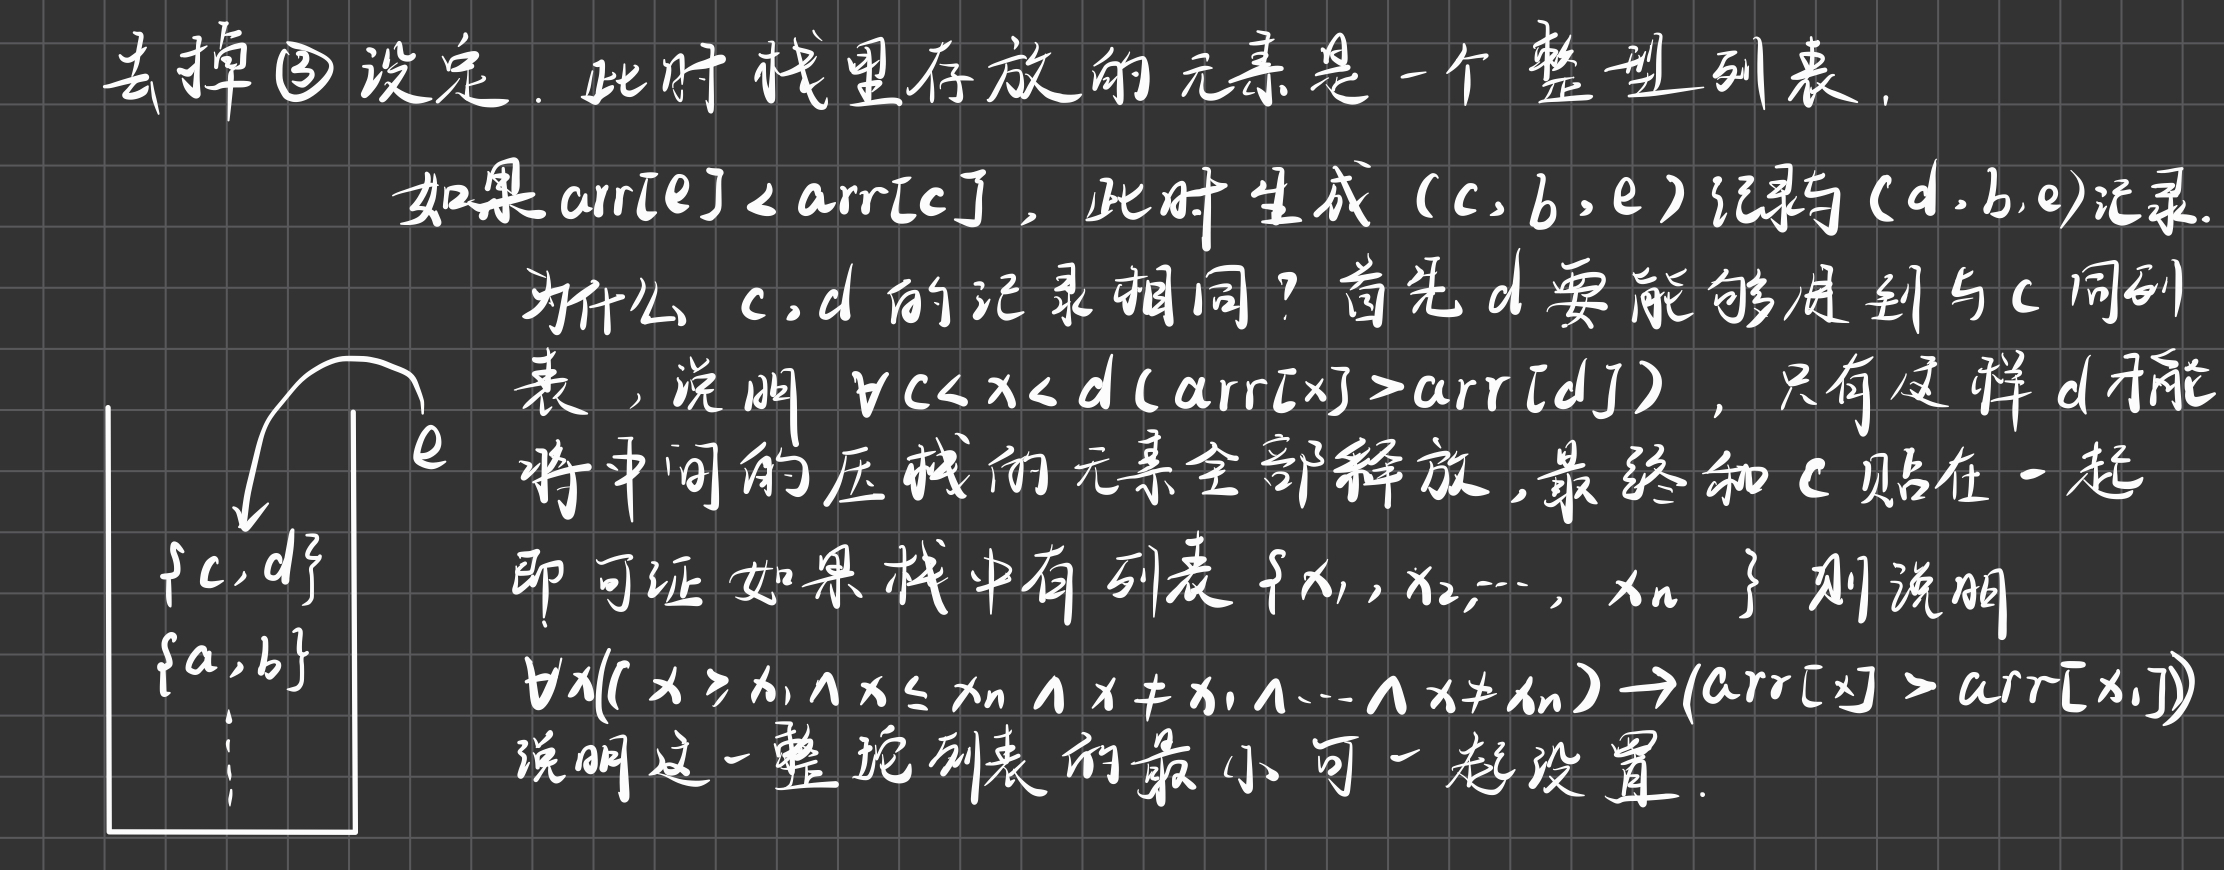 去掉③设定. 此时栈里存放的元素是一个整型列表.
如果arr[e]<arr[c], 此时生成(c,b,e)记录与(d,b,e)记录.
为什么c,d的记录相同?首先d要能够进到与c同列
表,说明∀c<x<d(arr[x]>arr[d]),只有这样d才能
将中间的压栈的元素全部释放,最终和c贴在一起
即可证如果栈中有列表{x₁,x₂,…,xₙ}则说明
∀x((x≥x₁∧x≤xₙ∧x≠x₁∧…∧x≠xₙ)→(arr[x]>arr[x₁]))
说明这一整坨列表的最小可一起设置.
e
{c,d}
{a,b}